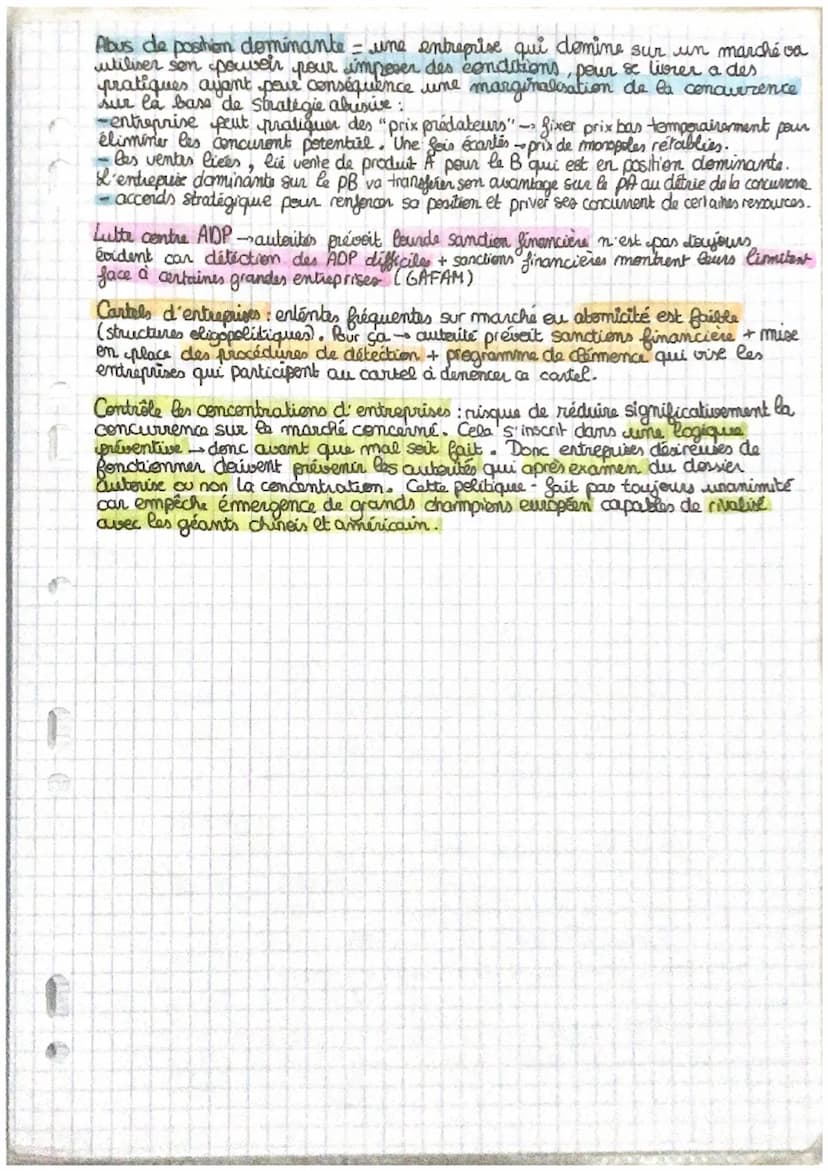 Abus de position dominante = une entreprise qui domine sur un marché va
utiliser son pouvoir pour imposer des conditions, pour se livrer a des
pratiques ayant pour conséquence une marginalisation de la concurrence
sur la base de stratégie abusive :
- entreprise peut pratiquer des "prix prédateurs" → fixer prix bas temporairement pour
éliminer les concurent potentiel. Une fois écartés → prix de monopoles rétablies.
- les ventes liées, lié vente de produit A pour le B qui est en position dominante.
L'entreprise dominante sur le pB va transférer son avantage sur le pA au détrie de la concurrence
- accords stratégique pour renforcer sa position et priver ses concurrent de certaines ressources.
Lutte contre ADP → autorités prévoit lourde sanction financière n'est pas toujours
évident car détection des ADP difficiles + sanctions financières montrent leurs limites
face à certaines grandes entreprises (GAFAM)
Cartels d'entreprises : ententes fréquentes sur marché ou atomicité est faible
(structures oligopolitiques). Pour ça → autorité prévoit sanctions financière + mise
en place des procédures de détection + programme de clémence qui vise les
entreprises qui participent au cartel à dénoncer ce cartel.
Contrôle les concentrations d'entreprises : risque de réduire significativement la
concurrence sur le marché concerné. Cela s'inscrit dans une logique
préventive → donc avant que mal soit fait. Donc entreprises désireuses de
fonctionner doivent prévenir les autorités qui après examen du dossier
autorise ou non la concentration. Cette politique - fait pas toujours unanimité
car empêche émergence de grands champions européen capables de rivalisé
avec les géants chinois et américain.